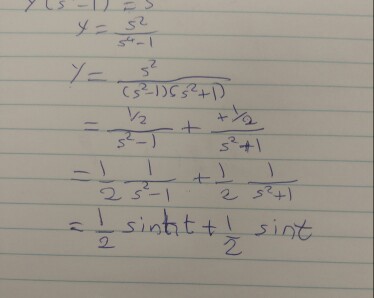 Y(s⁴-1) = s²
Y = s²/(s⁴-1)
Y = s²/((s²-1)(s²+1))
= ½/(s²-1) + +½/(s²+1)
= 1/2 1/(s²-1) + 1/2 1/(s²+1)
= 1/2 sinht + 1/2 sint